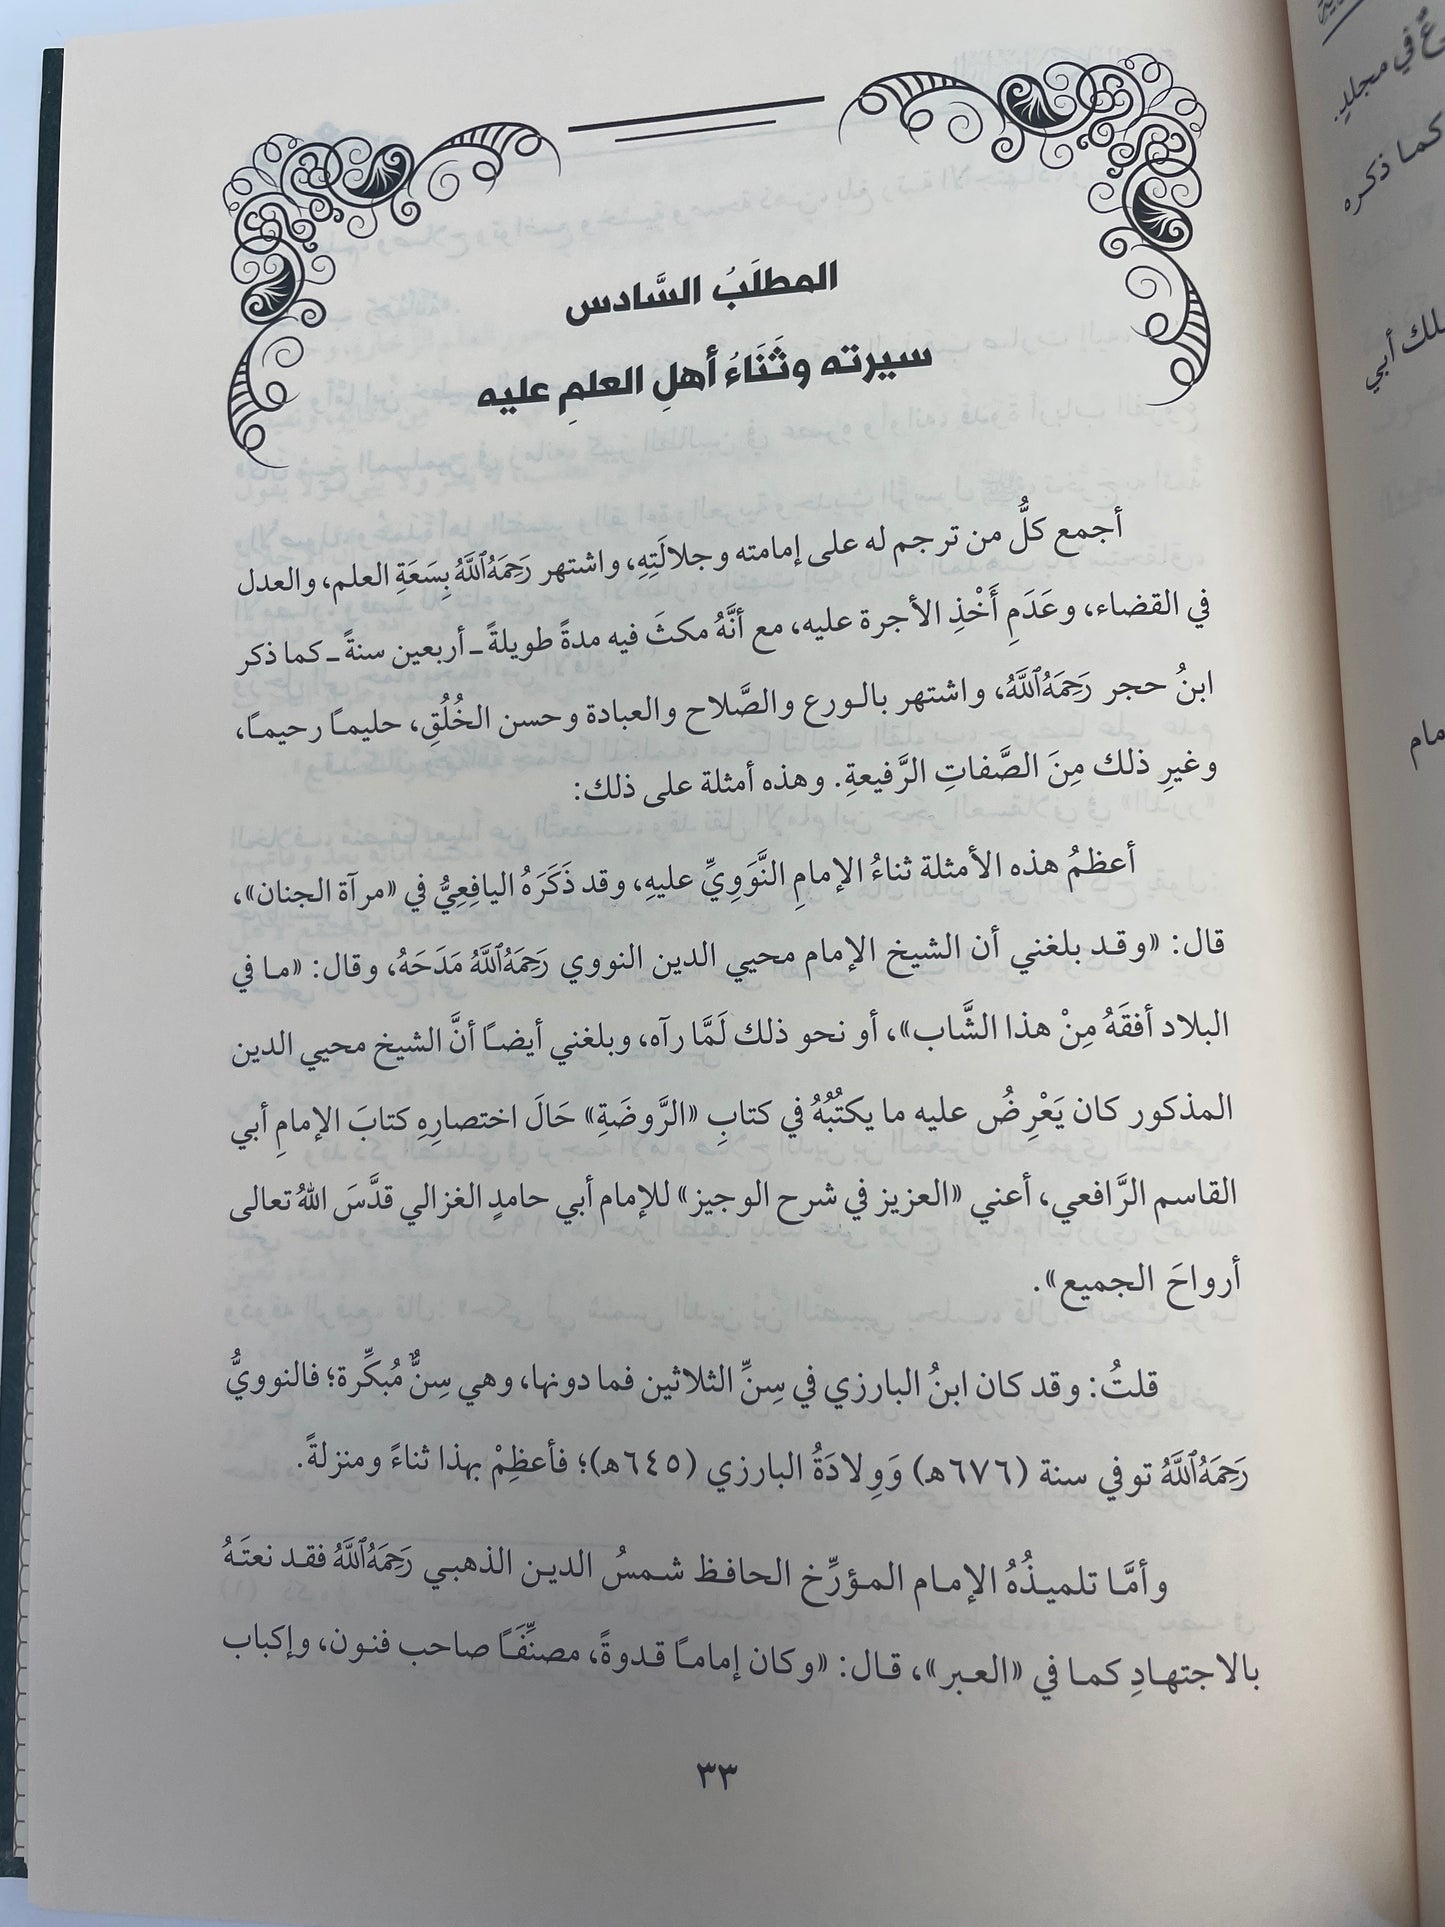 المطلَبُ السَّادس
سيرته وثَنَاءُ أهلِ العلمِ عليه
أجمع كلُّ من ترجم له على إمامته وجلالَتِهِ، واشتهر رَحِمَهُ ٱللَّهُ بِسَعَةِ العلم، والعدل
في القضاء، وعَدَمِ أَخْذِ الأجرة عليه، مع أنَّهُ مكثَ فيه مدةً طويلةً ـ أربعين سنةً ـ كما ذكر
ابنُ حجر رَحِمَهُ ٱللَّهُ، واشتهر بالورع والصَّلاح والعبادة وحسن الخُلُقِ، حليمًا رحيمًا،
وغيرِ ذلك مِنَ الصَّفاتِ الرَّفيعةِ. وهذه أمثلة على ذلك:
أعظمُ هذه الأمثلة ثناءُ الإمامِ النَّوَوِيِّ عليهِ، وقد ذَكَرَهُ اليافِعِيُّ في «مرآة الجنان»،
قال: «وقد بلغني أن الشيخ الإمام محيي الدين النووي رَحِمَهُ ٱللَّهُ مَدَحَهُ، وقال: «ما في
البلاد أفقَهُ مِنْ هذا الشَّاب»، أو نحو ذلك لَمَّا رآه، وبلغني أيضًا أنَّ الشيخ محيي الدين
المذكور كان يَعْرِضُ عليه ما يكتُبُهُ في كتابِ «الرَّوضَةِ» حَالَ اختصارِهِ كتابَ الإمامِ أبي
القاسم الرَّافعي، أعني «العزيز في شرح الوجيز» للإمام أبي حامدٍ الغزالي قدَّسَ اللهُ تعالى
أرواحَ الجميع».
قلتُ: وقد كان ابنُ البارزي في سِنِّ الثلاثين فما دونها، وهي سِنٌّ مُبكِّرة؛ فالنوويُّ
رَحِمَهُ ٱللَّهُ توفي سنة (٦٧٦هـ) وَوِلادَةُ البارزي (٦٤٥هـ)؛ فأعظِمْ بهذا ثناءً ومنزلةً.
وأمَّا تلميذُهُ الإمام المؤرِّخ الحافظ شمسُ الدين الذهبي رَحِمَهُ ٱللَّهُ فقد نعتَهُ
بالاجتهادِ كما في «العبر»، قال: «وكان إمامًا قدوةً، مصنِّفًا صاحب فنون، وإكباب
٣٣
ع في مجلدٍ.
كما ذكره
أبي